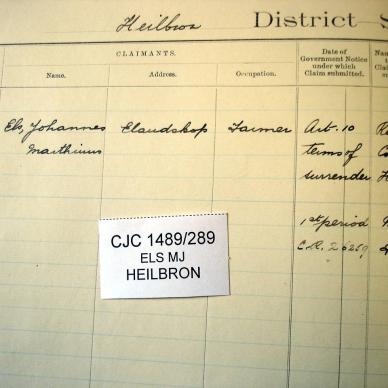 Heilbron District S
CLAIMANTS.
Name. Address. Occupation. Date of Government Notice under which Claim submitted.
Els, Johannes Elandskop Farmer Art. 10
Marthinus terms of
surrender
1st period
C.R. 2626
CJC 1489/289
ELS MJ
HEILBRON